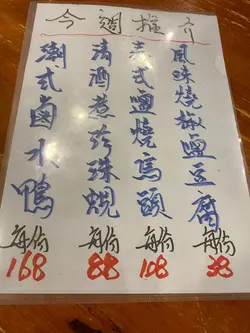 今週推介
風味燒椒鹽豆腐
每份
38
泰式鹽燒烏頭
每份
108
清酒煮珍珠蜆
每份
88
潮式鹵水鴨
每份
168